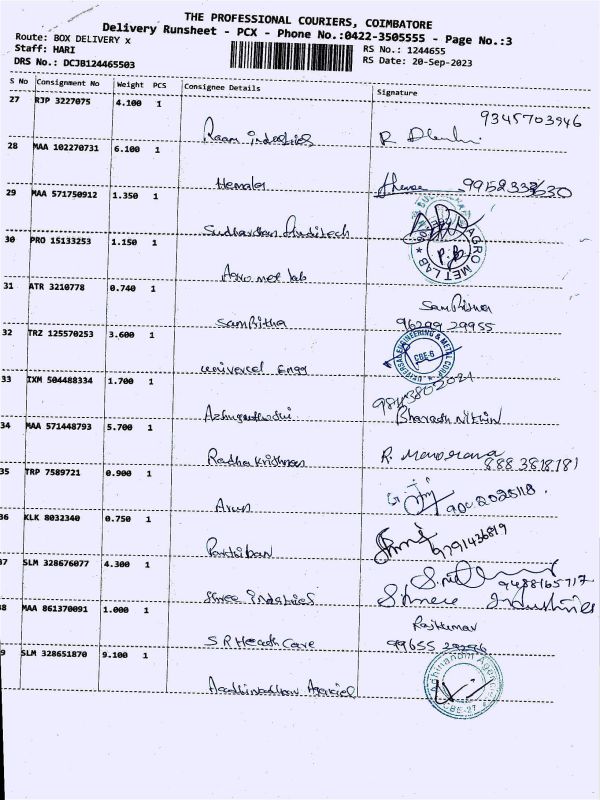 THE PROFESSIONAL COURIERS, COIMBATORE
Delivery Runsheet - PCX - Phone No.:0422-3505555 - Page No.:3
Route: BOX DELIVERY x
RS No.: 1244655
Staff: HARI
RS Date: 20-Sep-2023
DRS No.: DCJB124465503
S No Consignment No Weight PCS Consignee Details Signature
27 RJP 3227075 4.100 1
9345703946
Raam industries
28 MAA 102270731 6.100 1
Hemala
29 MAA 571750912 1.350 1
30 PRO 15133253 1.150 1
AGRO MET LAB
Agro met lab
31 ATR 3210778 0.740 1
SamRitha
SamRitha 96299 29955
32 TRZ 125570253 3.600 1
CBE-6
Universal Engg
33 IXM 504488334 1.700 1
Bharath Nithin
34 MAA 571448793 5.700 1
Radha Krishnan R. Manorama
888 3818181
35 TRP 7589721 0.900 1
Arun
36 KLK 8032340 0.750 1
9791436819
Parthiban
37 SLM 328676077 4.300 1
9488165717
Shree Industries Industries
38 MAA 861370091 1.000 1
Rajkumar
S R Health Care 99655
39 SLM 328651870 9.100 1
CBE-27